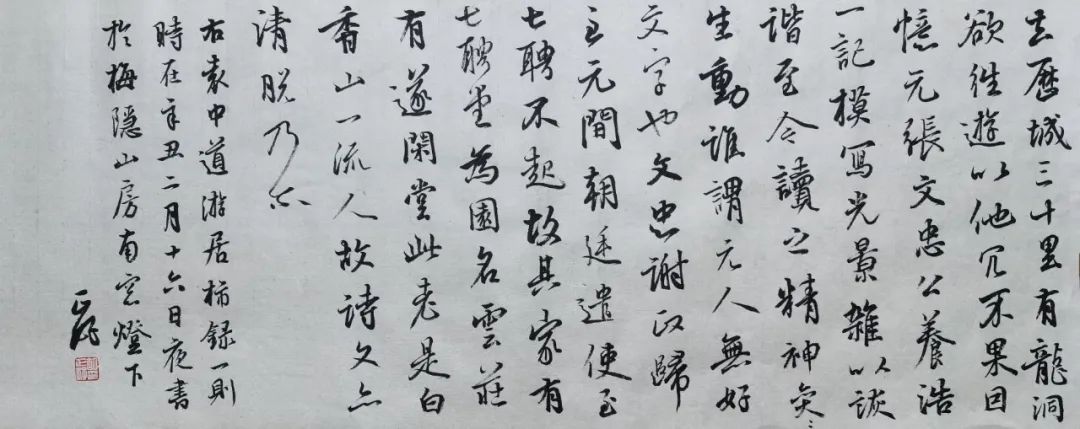 去歷城三十里有龍洞
欲往遊以他冗不果因
憶元張文忠公養浩
一記模寫光景雜以詼
諧至今讀之精神奕〻
生動誰謂元人無好
文字也文忠謝政歸
至元間朝廷遣使至
七聘不起故其家有
七聘堂為園名雲莊
有遂閑堂此老是白
香山一流人故詩文亦
清脫乃尔
右袁中道游居柿録一則
時在辛丑二月十六日夜書
於梅隐山房南窓燈下